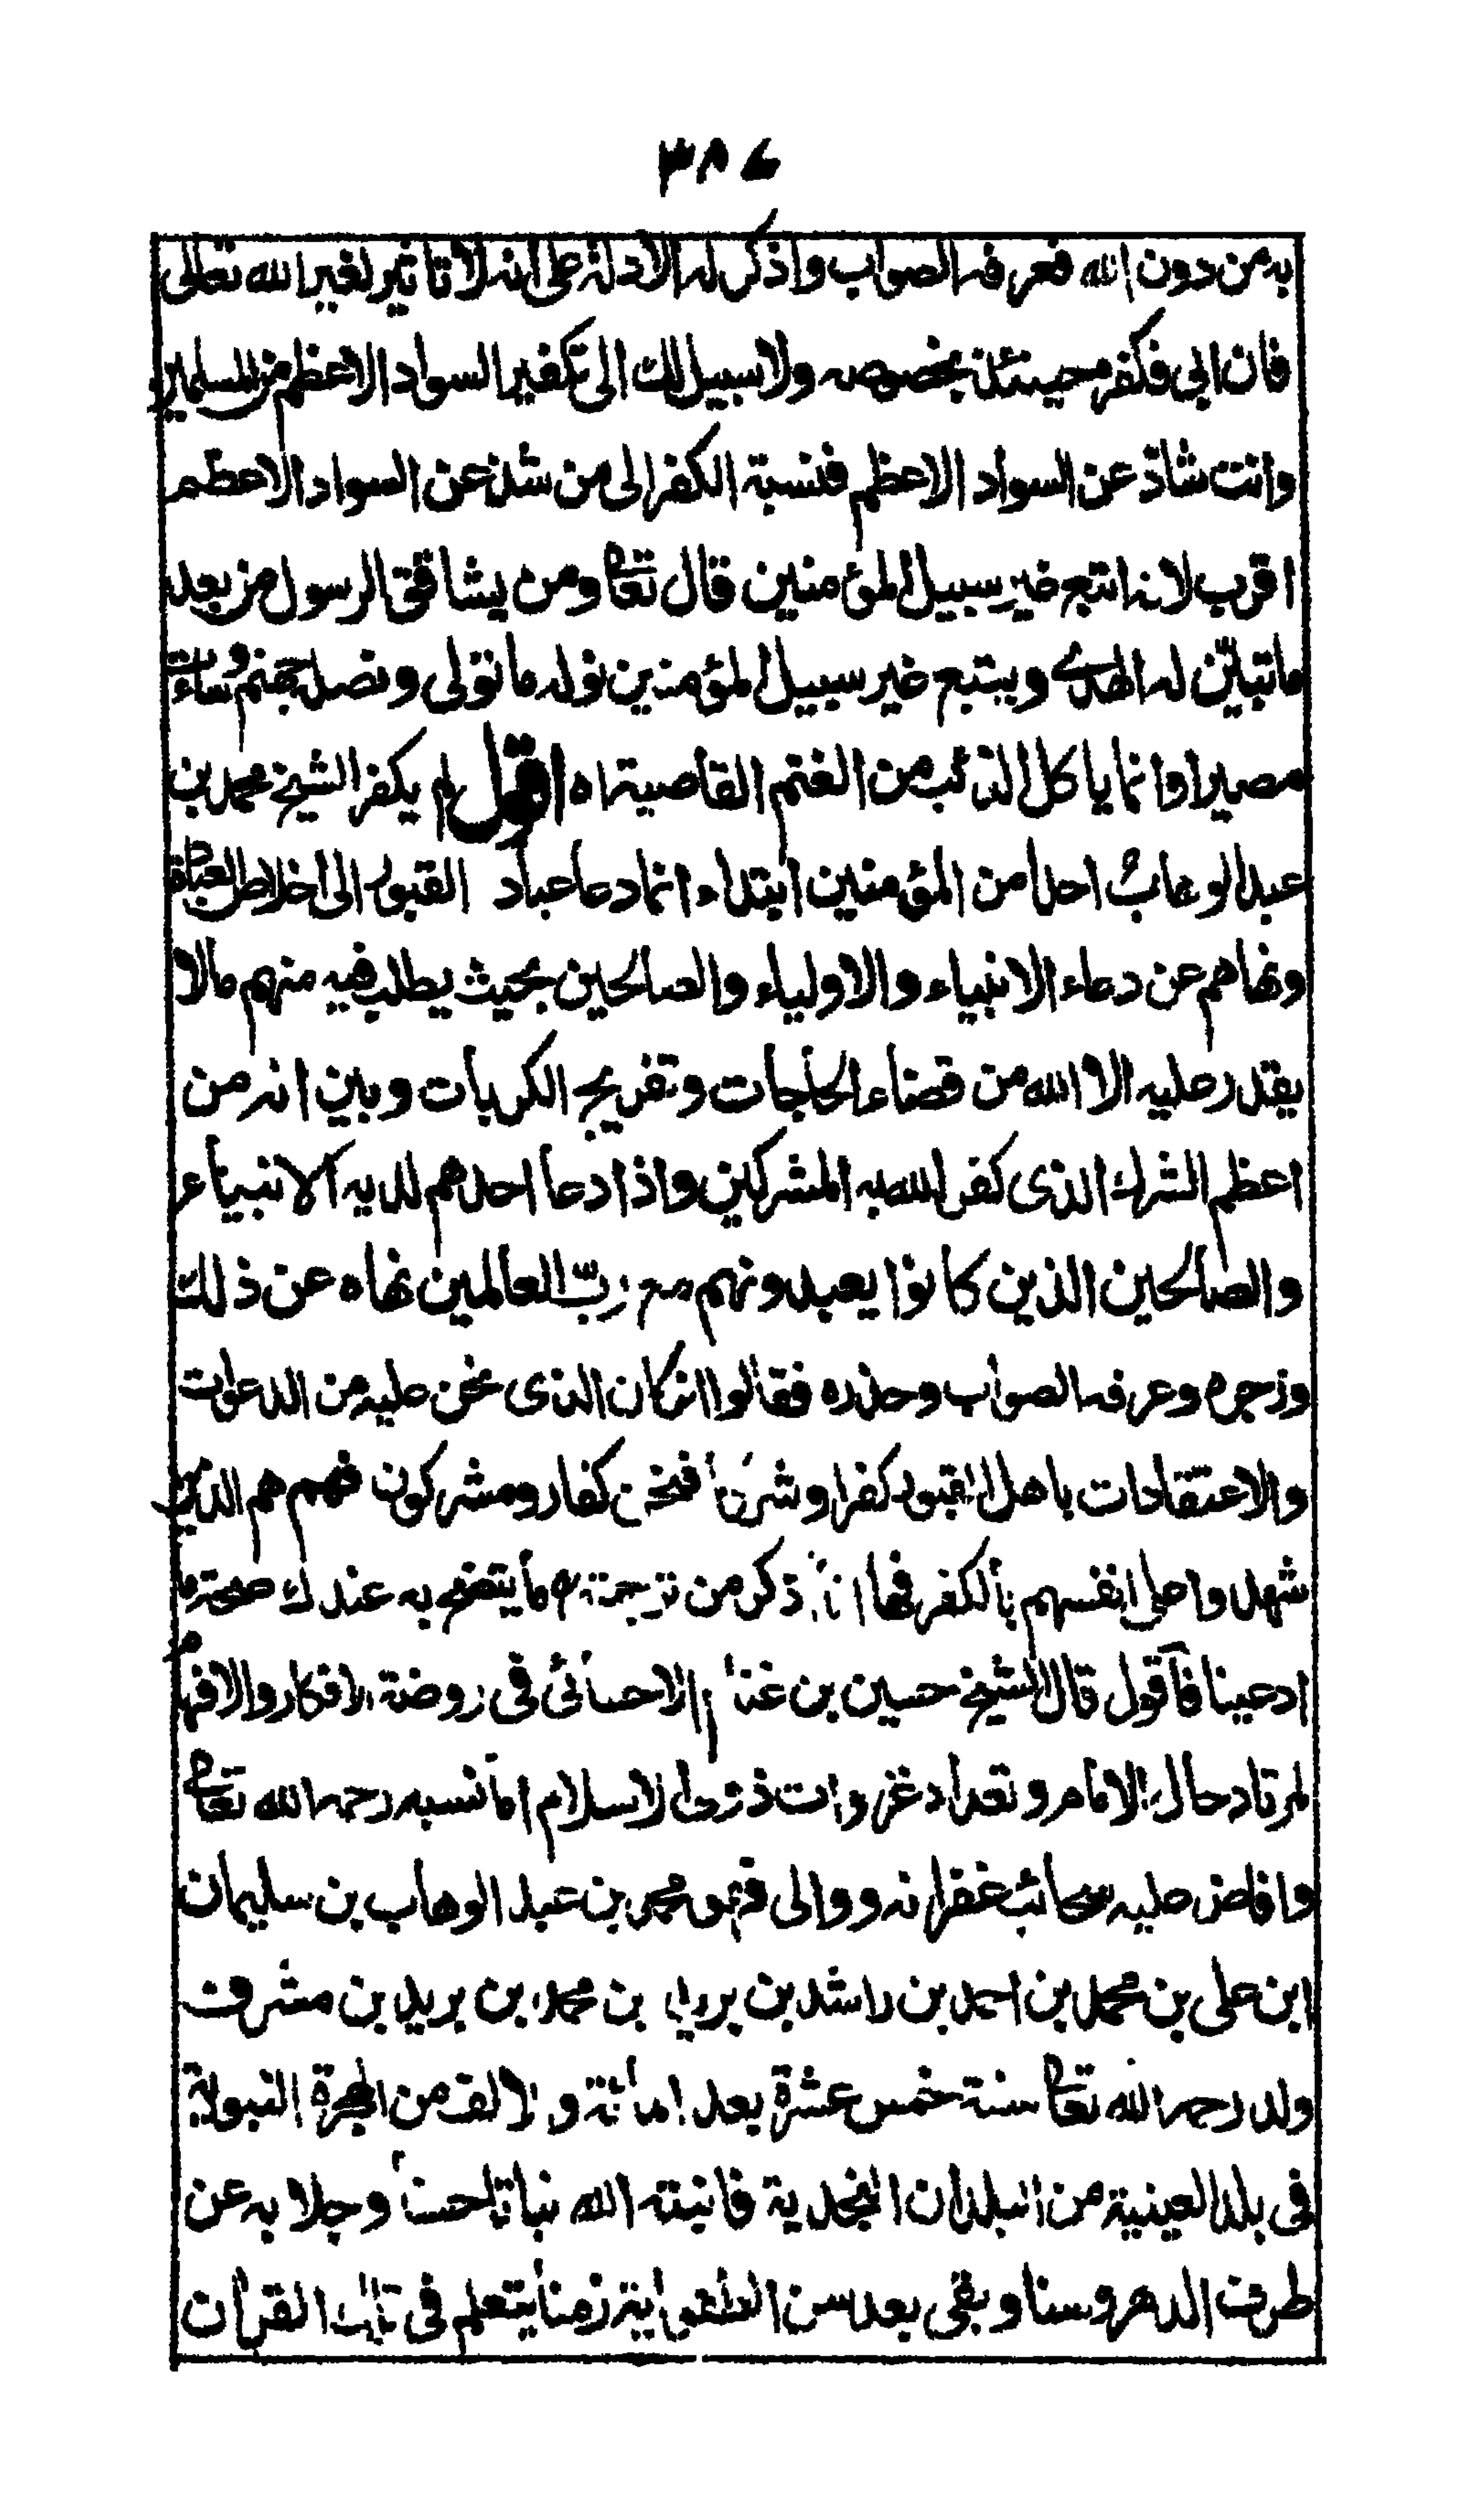 ٣٨٤
به من دون الله فعرفه الصواب واذكر له الادلة على انه لا تاثير لغير الله تعالى
فان ابى فكفره حينئذ بخصوصه ولا سبيل لك الى تكفير السواد الاعظم من المسلمين
وانت شاذ عن السواد الاعظم فنسبة الكفر الى من شذ عن السواد الاعظم
اقرب لانه اتبع غير سبيل المؤمنين قال تعا ومن يشاقق الرسول من بعد
ما تبيّن له الهدى ويتبع غير سبيل المؤمنين نوله ما تولى ونصله جهنم وساءت
مصيرا وانما ياكل الذئب من الغنم القاصية اه اقول لم يكفر الشيخ محمد بن
عبد الوهاب احدا من المؤمنين ابتداء انما دعا عباد القبور الى اخلاص العبادة
ونهاهم عن دعاء الانبياء والاولياء والصالحين بحيث يطلب فيه منهم ما لا
يقدر عليه الا الله من قضاء الحاجات وتفريج الكربات وبين انه من
اعظم الشرك الذى كفر الله به المشركين واذا دعا احدهم لديه الانبياء
والصالحين الذين كانوا يعبدونهم مع ربّ العالمين نهاه عن ذلك
وزجره وعرفه الصواب وحذره فقالوا ان كان الذى نحن عليه من الدعوات
والاعتقادات باهل القبور كفرا وشركا فنحن كفار ومشركون فهم هم الذين
شهدوا على انفسهم بالكفر فها انا ذكر من ترجمته ما يتضح به عندك صحة ما
ادعينا فاقول قال الشيخ حسين بن غنام الاحسائى فى روضة الافكار والافهام
لمرتاد حال الامام وتعداد غزوات ذوى الاسلام اما نسبه رحمه الله تعا
وافاض عليه سحائب غفرانه ووالى فهو محمد بن عبد الوهاب بن سليمان
ابن على بن محمد بن احمد بن راشد بن بريد بن محمد بن بريد بن مشرف
ولد رحمه الله تعا سنة خمس عشرة بعد المائة والالف من الهجرة النبوية
فى بلد العينية من البلدان النجدية فانبته الله نباتا حسنا وجلا به عن
طرف الدهر وسنا وبقى بعد سن الطفولية زمنا يتعلم فى تلك القرآن